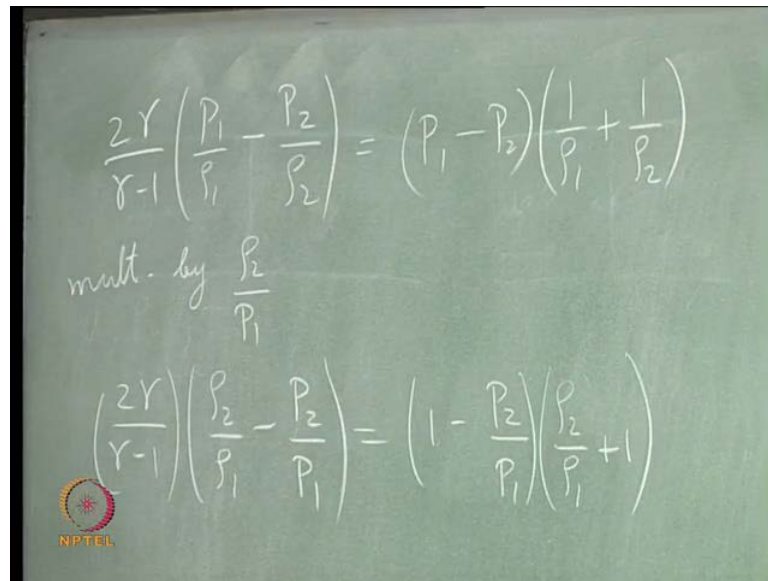 2γ/(γ-1) (P₁/ρ₁ - P₂/ρ₂) = (P₁ - P₂)(1/ρ₁ + 1/ρ₂)
mult. by ρ₂/P₁
(2γ/(γ-1)) (ρ₂/ρ₁ - P₂/P₁) = (1 - P₂/P₁)(ρ₂/ρ₁ + 1)
NPTEL